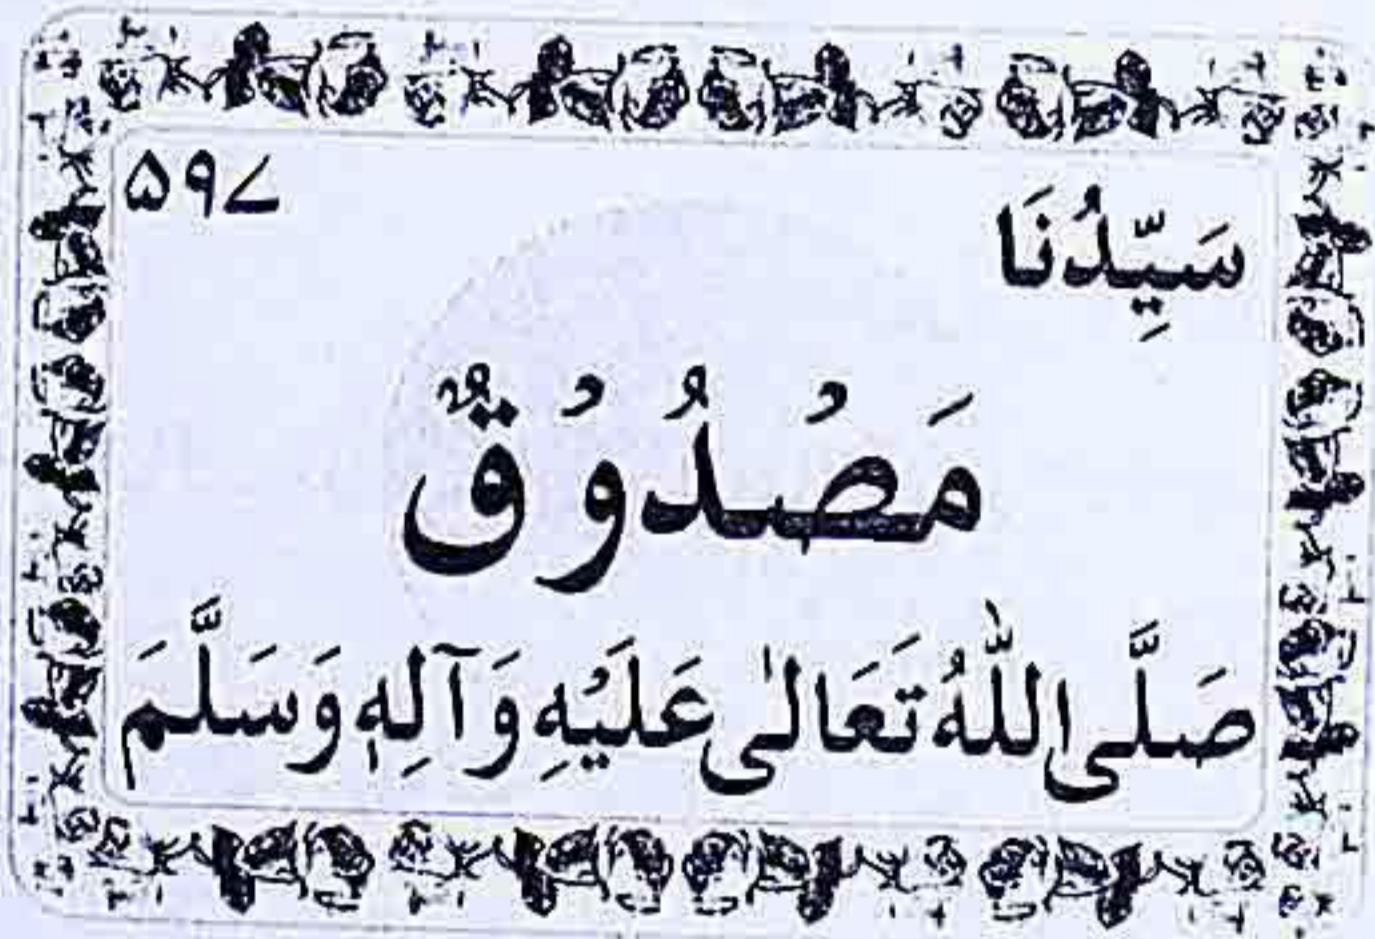 ۵۹۷
سَيِّدُنَا
مَصْدُوْقٌ
صَلَّى اللّٰهُ تَعَالٰى عَلَيْهِ وَآلِهٖ وَسَلَّمَ